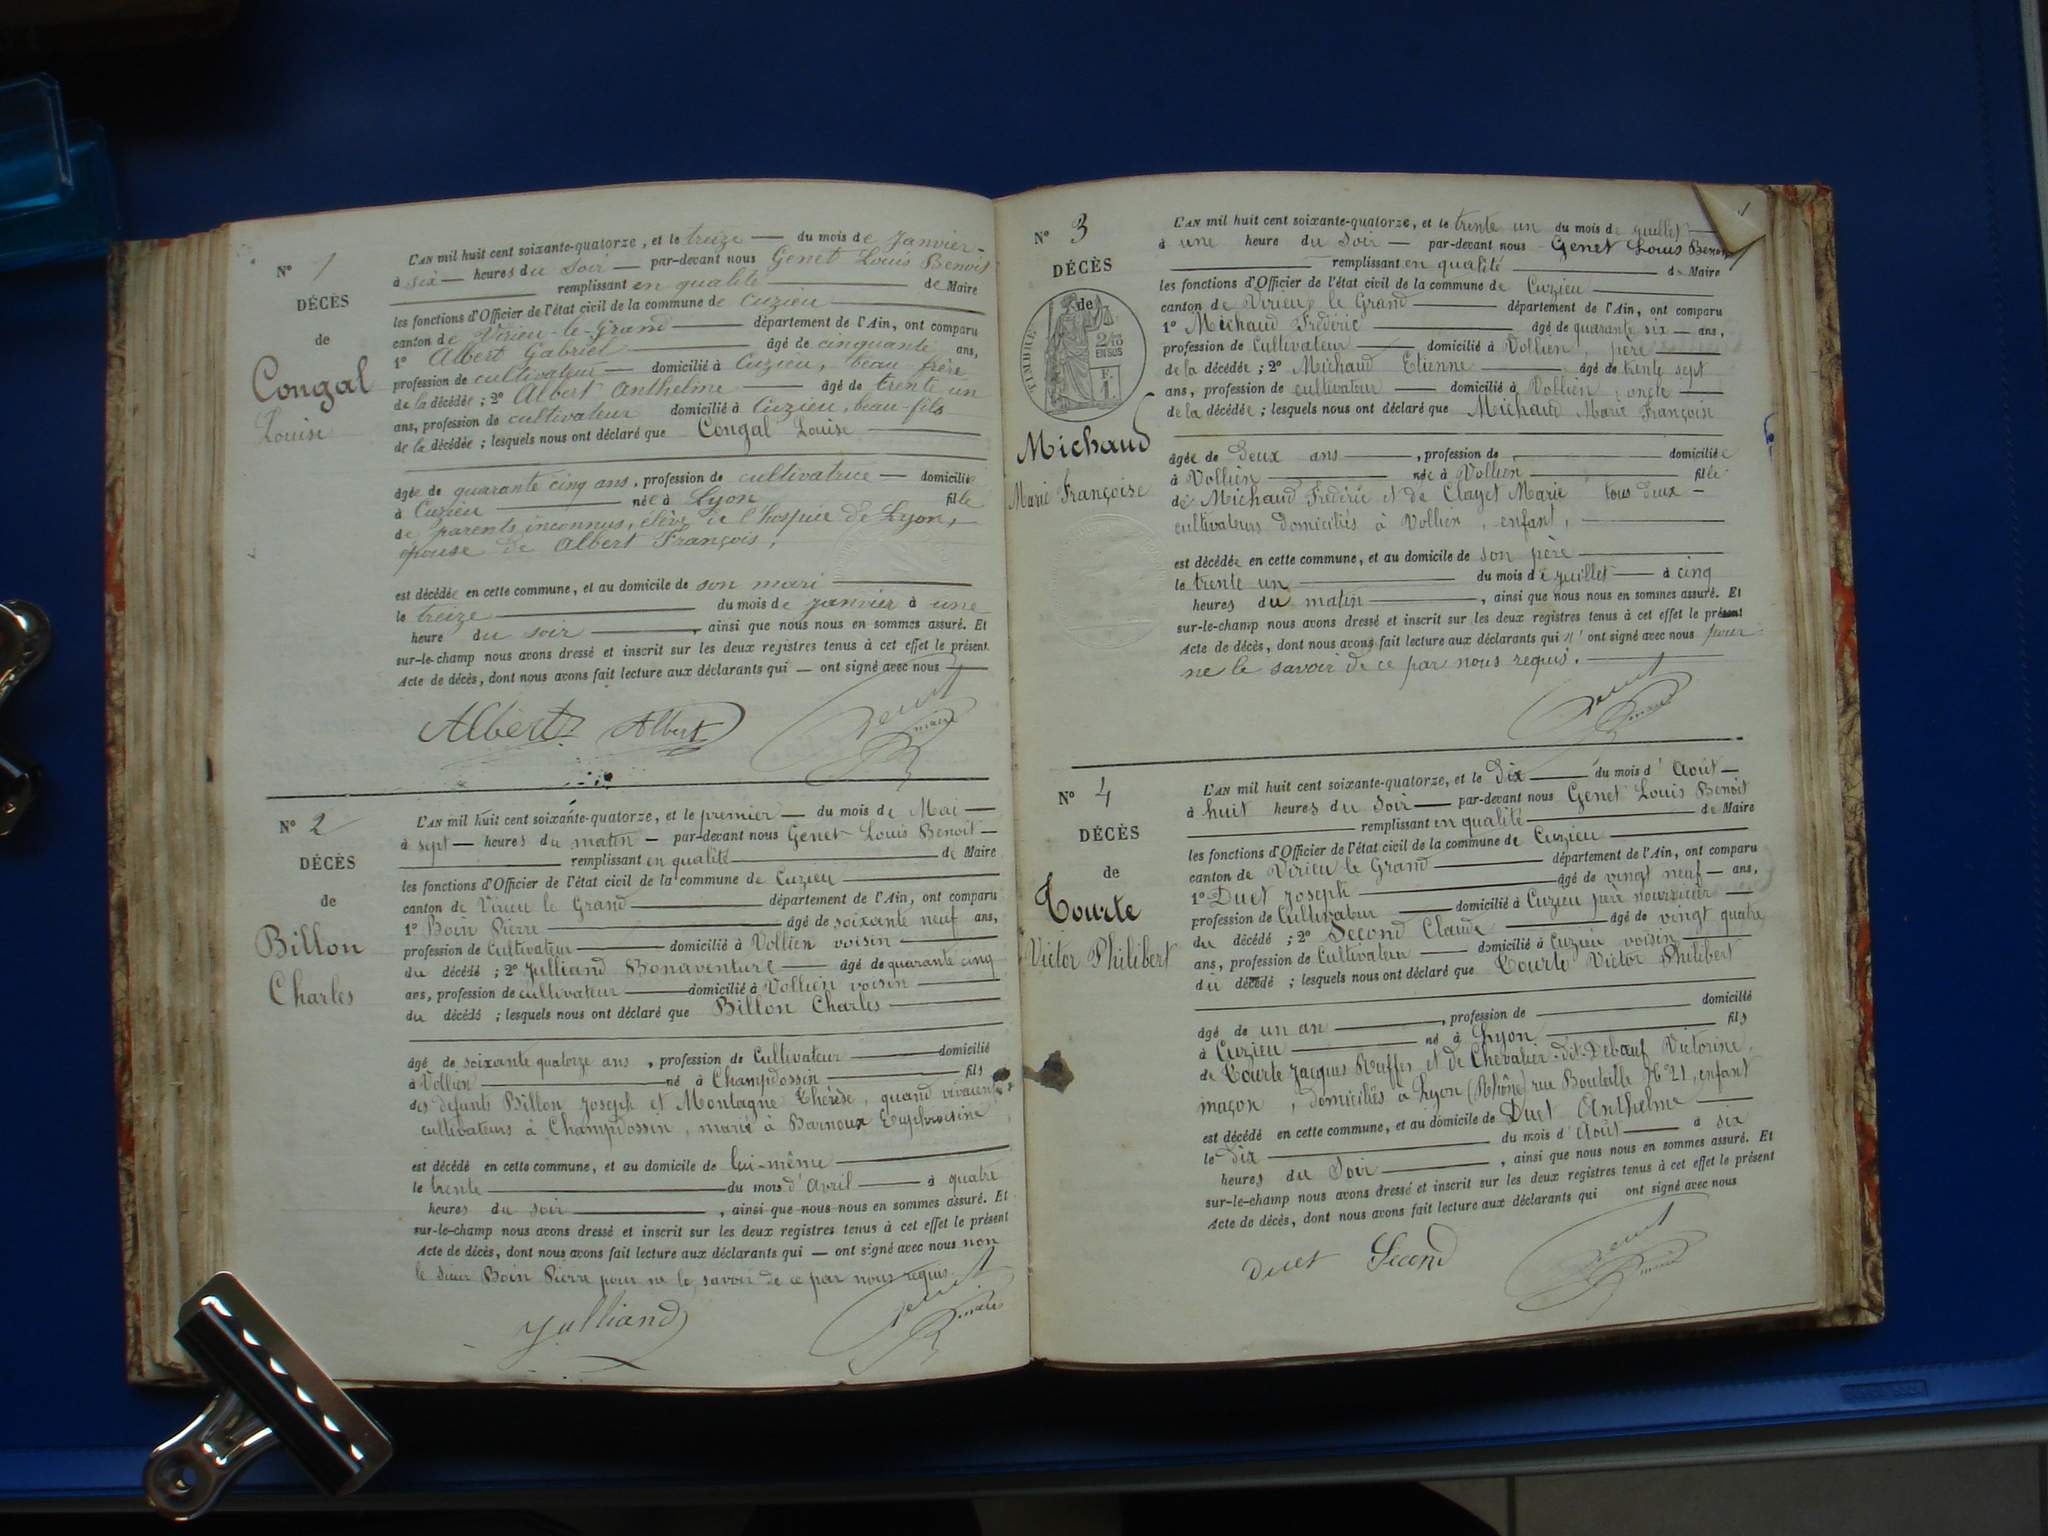 N° 1
DÉCÈS
de
Congal
Louise
L'AN mil huit cent soixante-quatorze, et le treize du mois de Janvier
à six heures du Soir par-devant nous Genet Louis Benoit
remplissant en qualité de Maire
les fonctions d'Officier de l'état civil de la commune de Cuzieu
canton de Virieu-le-Grand département de l'Ain, ont comparu
1° Albert Gabriel âgé de cinquante ans,
profession de cultivateur domicilié à Cuzieu, beau frère
de la décédée ; 2° Albert Anthelme âgé de trente un
ans, profession de cultivateur domicilié à Cuzieu, beau-fils
de la décédée ; lesquels nous ont déclaré que Congal Louise
âgée de quarante cinq ans, profession de cultivatrice domiciliée
à Cuzieu née à Lyon fille
de parents inconnus, élève de l'hospice de Lyon,
épouse de Albert François,
est décédée en cette commune, et au domicile de son mari
le treize du mois de Janvier à une
heure du soir, ainsi que nous nous en sommes assuré. Et
sur-le-champ nous avons dressé et inscrit sur les deux registres tenus à cet effet le présent
Acte de décès, dont nous avons fait lecture aux déclarants qui — ont signé avec nous
Albert Albert Genet maire
N° 2
DÉCÈS
de
Billon
Charles
L'AN mil huit cent soixante-quatorze, et le premier du mois de Mai
à sept heures du matin par-devant nous Genet Louis Benoit
remplissant en qualité de Maire
les fonctions d'Officier de l'état civil de la commune de Cuzieu
canton de Virieu le Grand département de l'Ain, ont comparu
1° Boin Pierre âgé de soixante neuf ans,
profession de Cultivateur domicilié à Vollien voisin
du décédé ; 2° Julliand Bonaventure âgé de quarante cinq
ans, profession de cultivateur domicilié à Vollien voisin
du décédé ; lesquels nous ont déclaré que Billon Charles
âgé de soixante quatorze ans, profession de Cultivateur domicilié
à Vollien né à Champdossin fils
des defunts Billon Joseph et Montagne Thérèse, quand vivaient
cultivateurs à Champdossin, marié à Barnoux Euphroisine
est décédé en cette commune, et au domicile de lui-même
le trente du mois d'avril à quatre
heures du soir, ainsi que nous nous en sommes assuré. Et
sur-le-champ nous avons dressé et inscrit sur les deux registres tenus à cet effet le présent
Acte de décès, dont nous avons fait lecture aux déclarants qui — ont signé avec nous non
le sieur Boin Pierre pour ne le savoir de ce par nous requis.
Julliand Genet maire
N° 3
DÉCÈS
de
TIMBRE
2/10
EN SUS
F.
1.
Michaud
Marie Françoise
L'AN mil huit cent soixante-quatorze, et le trente un du mois de juillet
à une heure du Soir par-devant nous Genet Louis Benoit
remplissant en qualité de Maire
les fonctions d'Officier de l'état civil de la commune de Cuzieu
canton de Virieu le Grand département de l'Ain, ont comparu
1° Michaud Frédéric âgé de quarante six ans,
profession de Cultivateur domicilié à Vollien, père
de la décédée ; 2° Michaud Etienne âgé de trente sept
ans, profession de cultivateur domicilié à Vollien, oncle
de la décédée ; lesquels nous ont déclaré que Michaud Marie Françoise
âgée de deux ans, profession de domiciliée
à Vollien née à Vollien fille
de Michaud Frédéric et de Clayet Marie tous deux
cultivateurs domiciliés à Vollien, enfant,
est décédée en cette commune, et au domicile de son père
le trente un du mois de juillet à cinq
heures du matin, ainsi que nous nous en sommes assuré. Et
sur-le-champ nous avons dressé et inscrit sur les deux registres tenus à cet effet le présent
Acte de décès, dont nous avons fait lecture aux déclarants qui n'ont signé avec nous pour
ne le savoir de ce par nous requis.
Genet maire
N° 4
DÉCÈS
de
Tourte
Victor Philibert
L'AN mil huit cent soixante-quatorze, et le Dix du mois d'Août
à huit heures du Soir par-devant nous Genet Louis Benoit
remplissant en qualité de Maire
les fonctions d'Officier de l'état civil de la commune de Cuzieu
canton de Virieu le Grand département de l'Ain, ont comparu
1° Duet Joseph âgé de vingt neuf ans,
profession de Cultivateur domicilié à Cuzieu père nourricier
du décédé ; 2° Second Claude âgé de vingt quatre
ans, profession de Cultivateur domicilié à Cuzieu voisin
du décédé ; lesquels nous ont déclaré que Tourte Victor Philibert
âgé de un an, profession de domicilié
à Cuzieu né à Lyon fils
de Tourte Jacques Ruffin et de Chevalier-dit-Debœuf Victorine,
maçon, domiciliés à Lyon (Rhône) rue Bouteille N° 21, enfant
est décédé en cette commune, et au domicile de Duet Anthelme
le dix du mois d'Août à six
heures du Soir, ainsi que nous nous en sommes assuré. Et
sur-le-champ nous avons dressé et inscrit sur les deux registres tenus à cet effet le présent
Acte de décès, dont nous avons fait lecture aux déclarants qui ont signé avec nous
Duet Second Genet maire